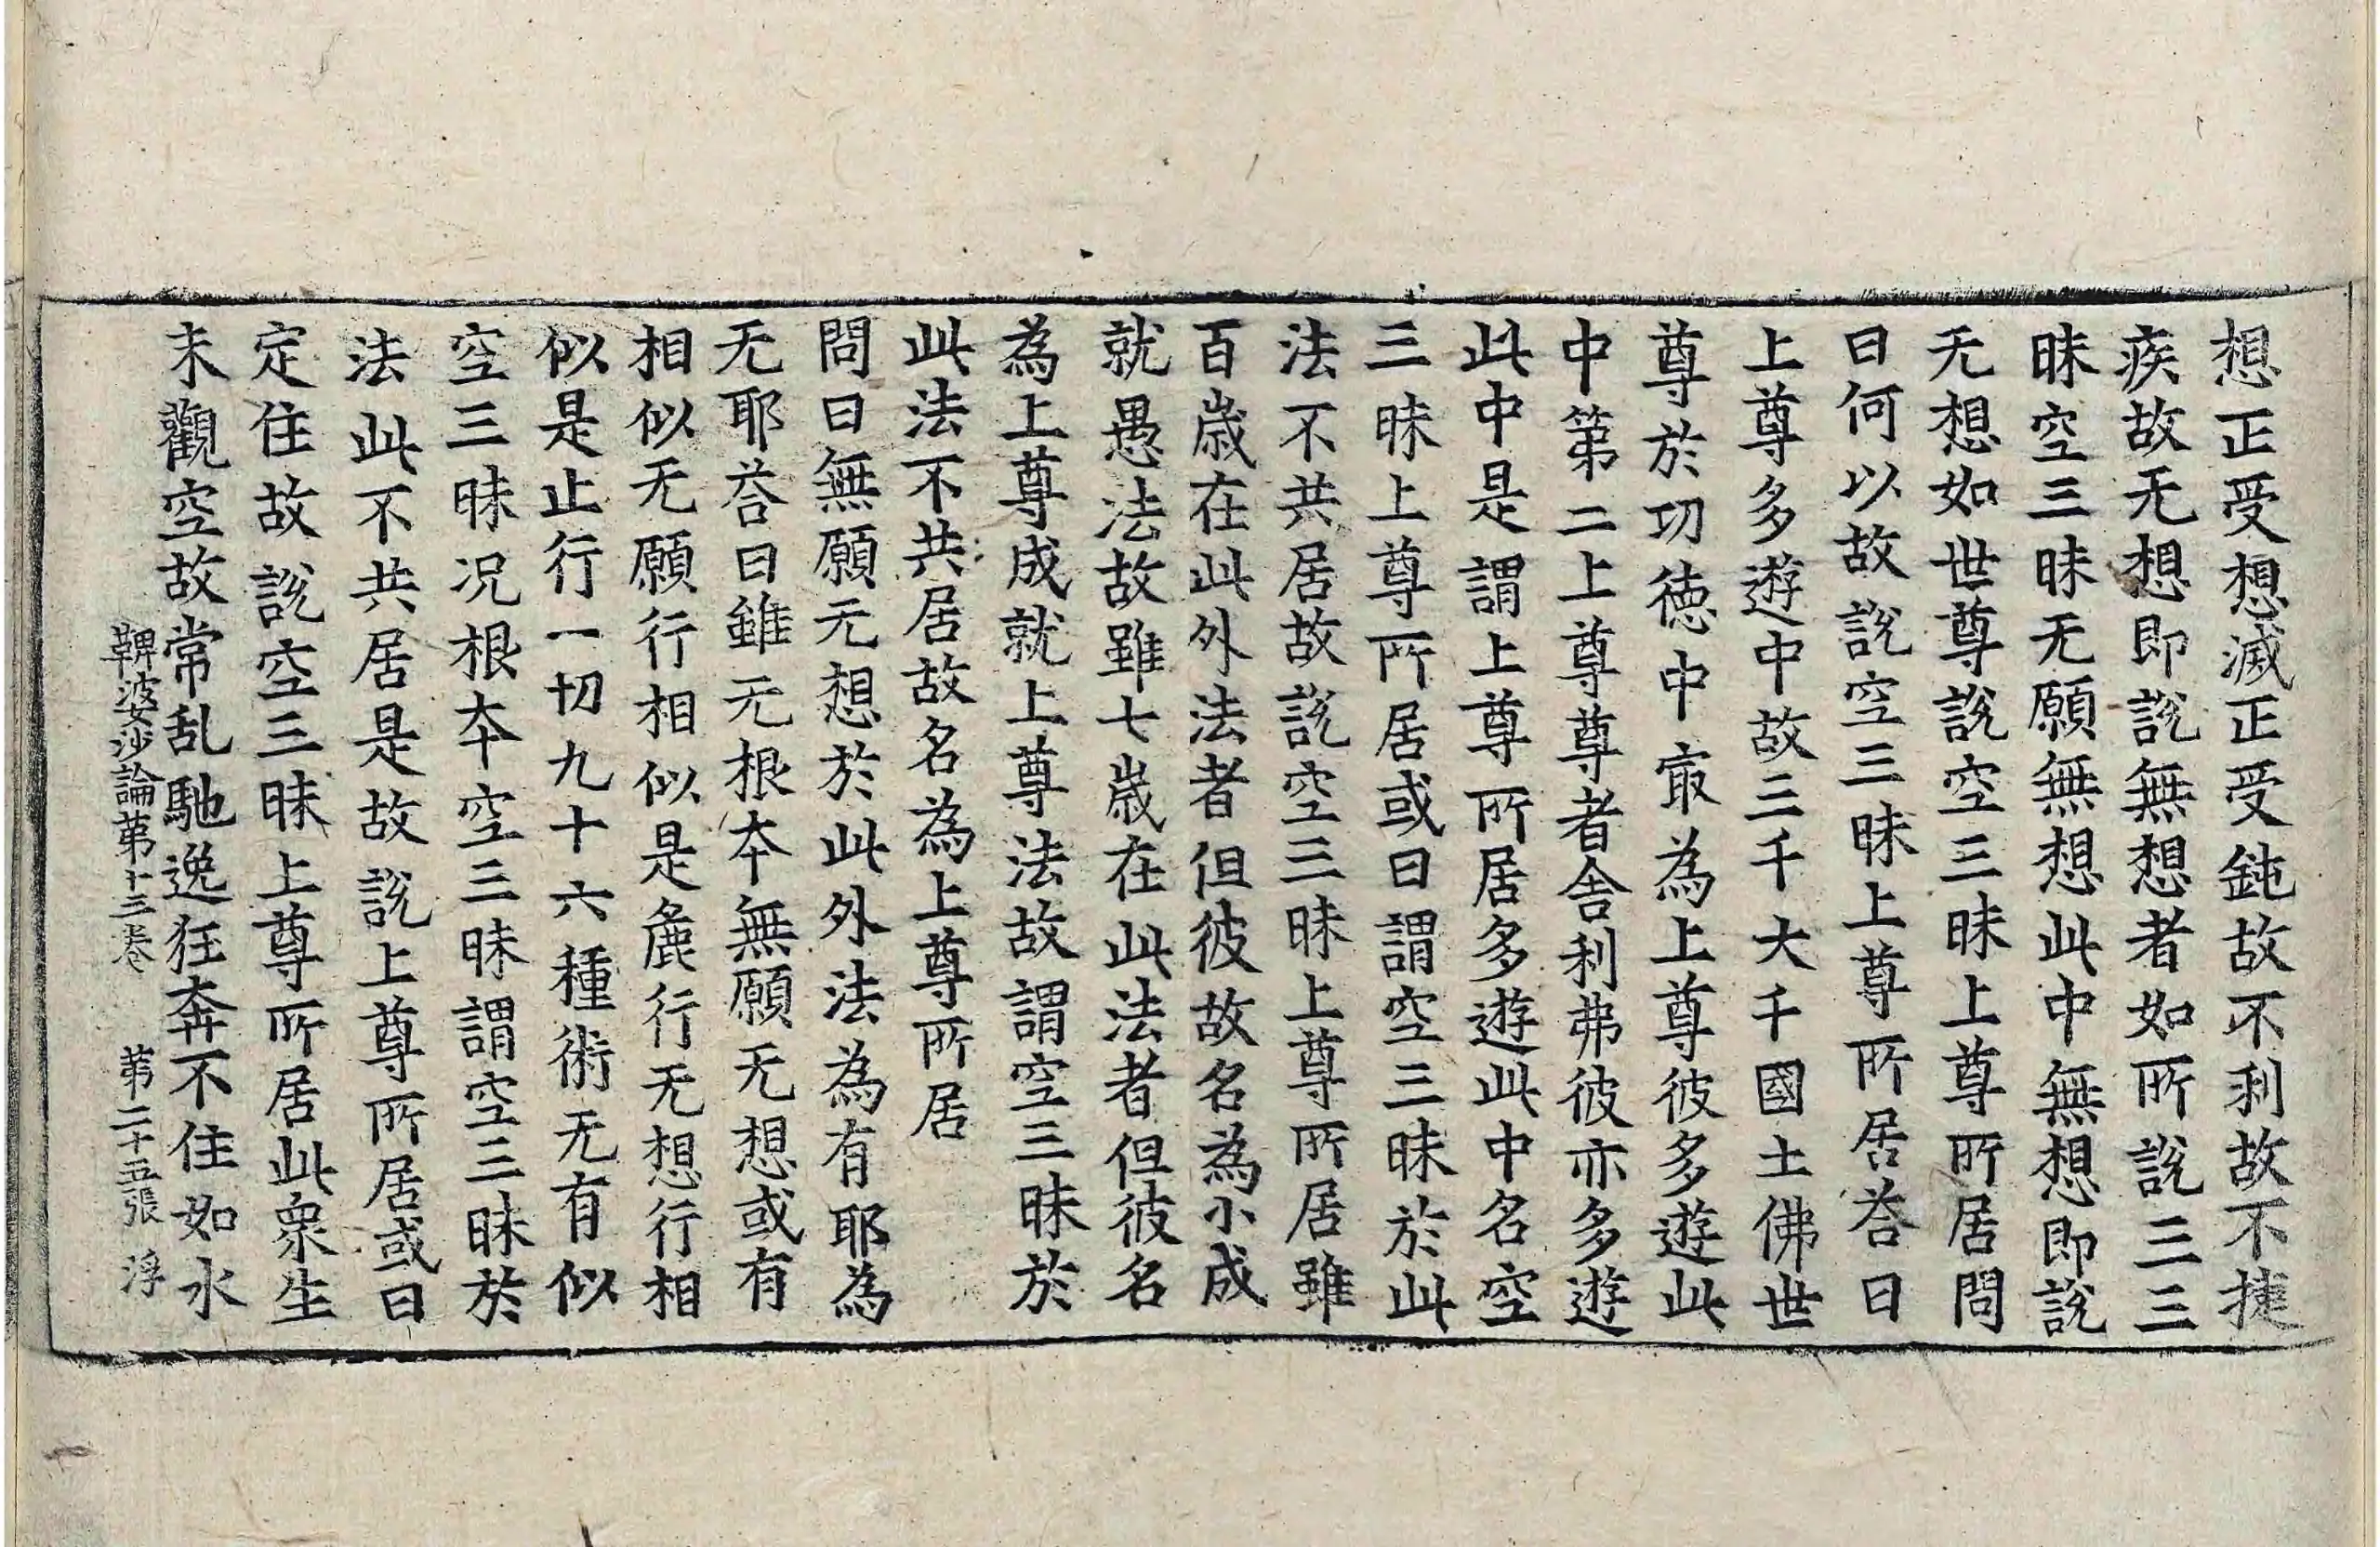 想正受想滅正受鈍故不利故不捷
疾故无想即說無想者如所說三三
昧空三昧无願無想此中無想即說
无想如世尊說空三昧上尊所居問
曰何以故說空三昧上尊所居荅曰
上尊多遊中故三千大千國土佛世
尊於功德中㝡為上尊彼多遊此
中第二上尊尊者舍利弗彼亦多遊
此中是謂上尊所居多遊此中名空
三昧上尊所居或曰謂空三昧於此
法不共居故說空三昧上尊所居雖
百歲在此外法者但彼故名為小成
就愚法故雖七歲在此法者但彼名
為上尊成就上尊法故謂空三昧於
此法不共居故名為上尊所居
問曰無願无想於此外法為有耶為
无耶荅曰雖无根本無願无想或有
相似无願行相似是麁行无想行相
似是止行一切九十六種術无有似
空三昧况根本空三昧謂空三昧於
法此不共居是故說上尊所居或曰
定住故說空三昧上尊所居此衆生
未觀空故常乱馳逸狂奔不住如水
鞞婆沙論第十三卷 第二十五張 浮